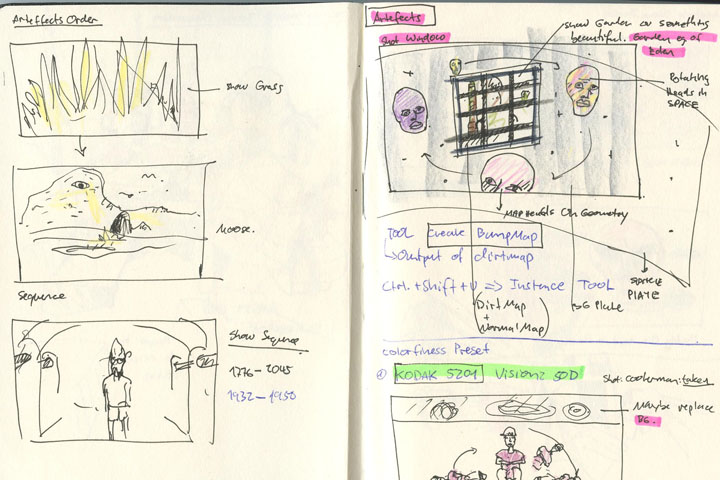 Arteffects Order
show Grass
Moose.
Sequence
Show Sequence
1776 - 2045
1932 - 1950
Artefects
Shot Window
show Garden or something
beautiful. Garden of
Eden
Rotating
Heads in
SPACE
MAP Heads On Geometry
TOOL Create BumpMap
Output of dirtmap
Ctrl. + Shift + U => Instance TOOL
SPACE
PLATE
Dirt Map
+
Normal Map
BG Plate
colorfiness Preset
KODAK 5201 Vision2 50D
Shot: cookerman: taken
Maybe replace
BG.